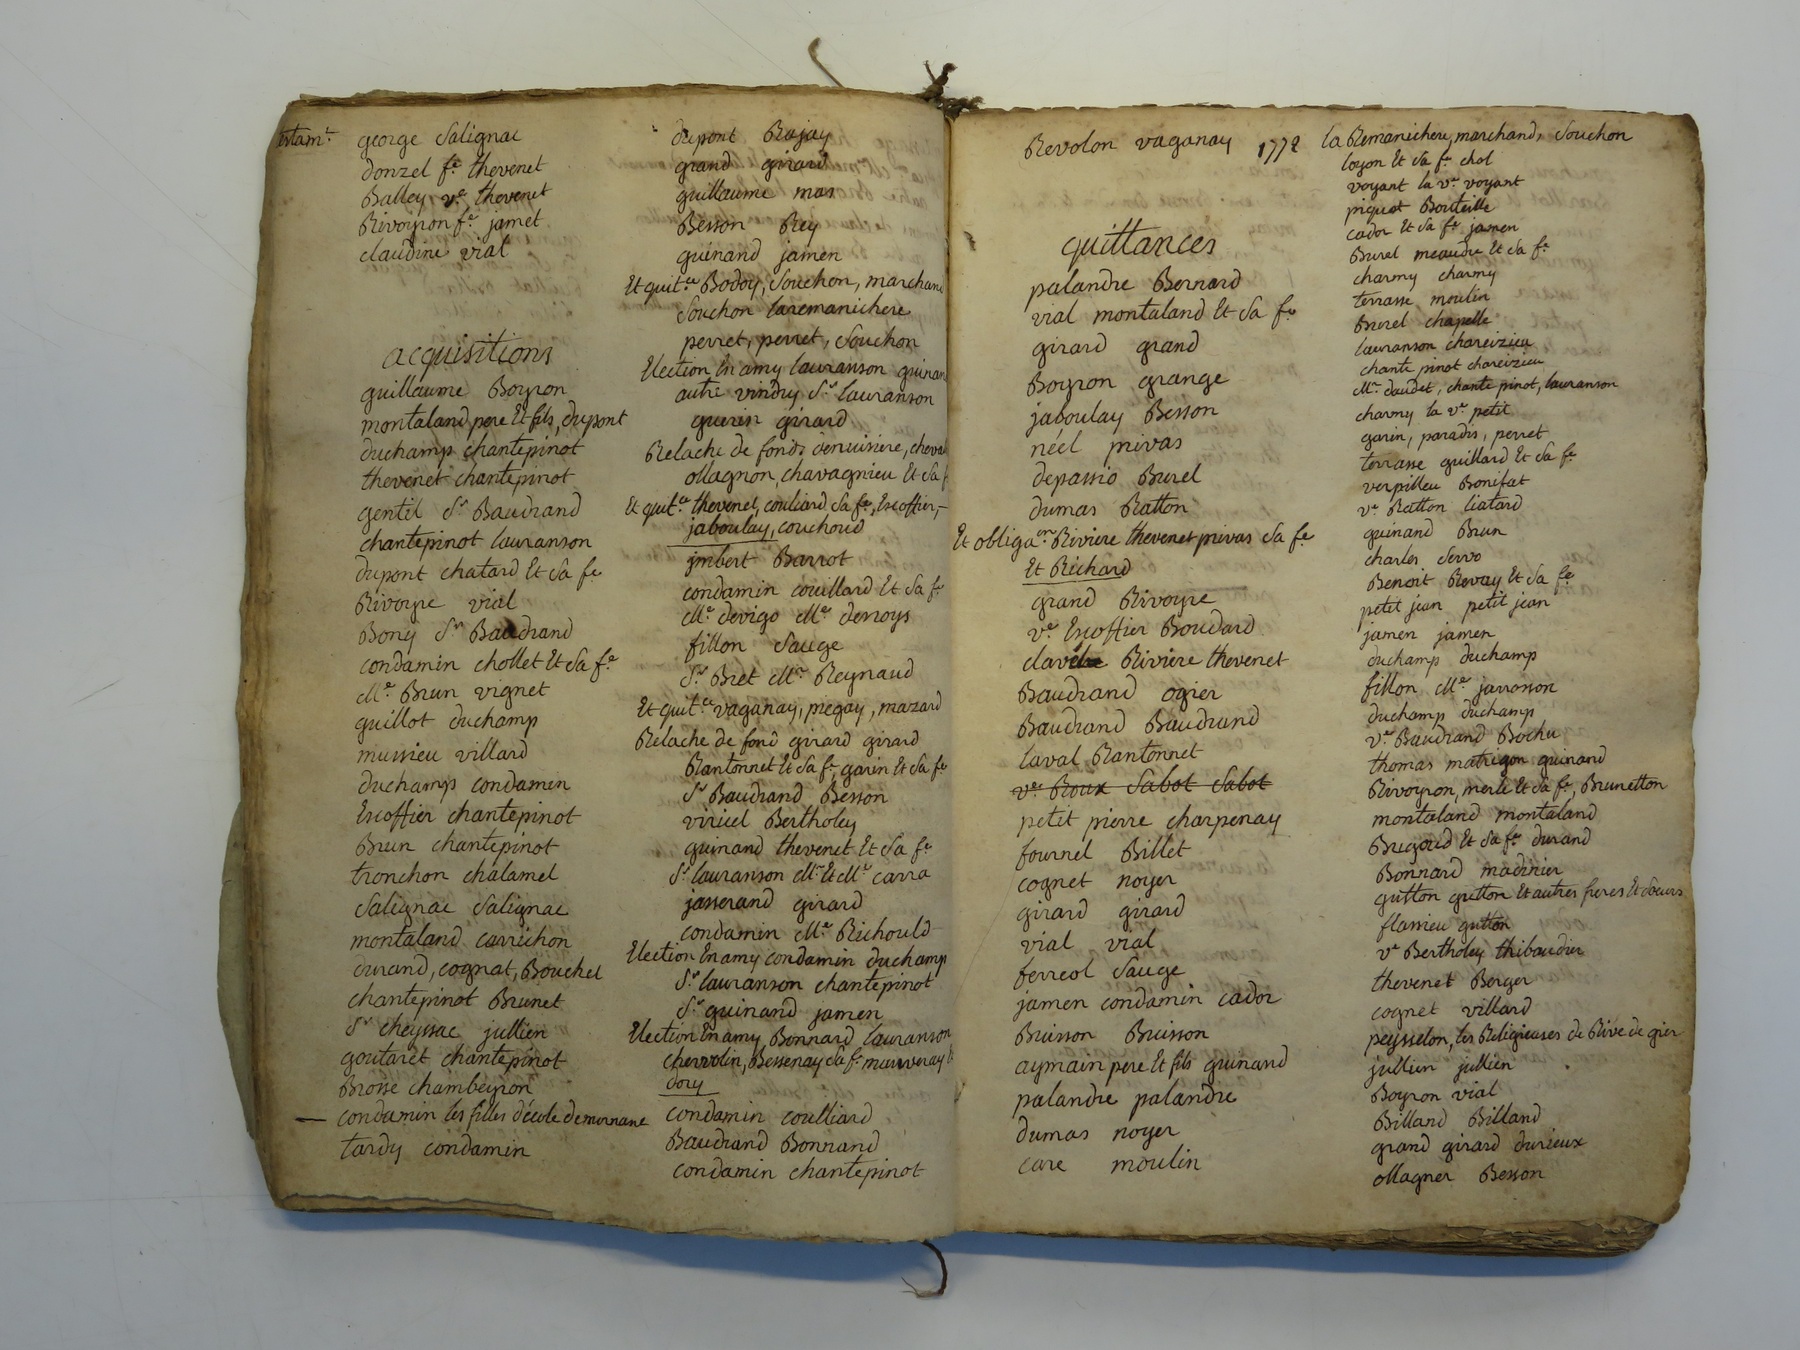 testam.t george Salignac
donzel f.e thevenet
Balley v.e thevenet
Rivoyron f.e jamet
claudine vial
acquisitions
guillaume Boyron
montaland pere Et fils, dupont
duchamp chantepinot
thevenet chantepinot
gentil S.r Baudrand
chantepinot lauranson
dupont chatard Et Sa f.e
Rivoyre vial
Bony S.r Baudrand
condamin chollet Et Sa f.e
M.e Brun vignet
guillot duchamp
mussieu villard
duchamp condamin
Escoffier chantepinot
Brun chantepinot
tronchon chalamel
Salignac Salignac
montaland carrichon
durand, cognat, Bouchet
chantepinot Brunet
S.r cheyssac jullien
goutaret chantepinot
Brosse chambeyron
— condamin les filles d'école de mornane
tardy condamin
dupont Rajay
grand girard
guillaume mas
Besson Rey
guinand jamen
Et quit.ce Bodoy, Souchon, marchand
Souchon laremanichere
perret, perret, Souchon
Election En amy lauranson guinand
autre vindry S.r lauranson
guerin girard
Relache de fond, denuisiere, cheval
ollagnon, chavagnieu Et Sa f
Et quit.ce thevenet, couliard Sa f.e, Escoffier,-
jaboulay, couchoud
jmbert Barrot
condamin couillard Et Sa f.e
M.e devigo M.e desroys
fillon Sauge
S.r Bret M.e Reynaud
Et quit.ce vaganay, piegay, mazard
Relache de fond girard girard
Rantonnet Et Sa f.e, garin Et Sa f.e
S.r Baudrand Besson
viricel Bertholey
guinand thevenet Et Sa f.e
S.r lauranson M.r Et M.e carra
jasserand girard
condamin M.e Richould
Election En amy condamin duchamp
S.r lauranson chantepinot
S.r guinand jamen
Election En amy Bonnard lauranson
chervolin, Bessenay Sa f.e murveray
dory
condamin coulliard
Baudrand Bonnand
condamin chantepinot
Revolon vaganay 1772
quittances
palandre Bernard
vial montaland Et Sa f.e
girard grand
Boyron grange
jaboulay Besson
néel privas
depassio Burel
dumas Ratton
Et obliga.on Riviere thevenet privas Sa f.e
Et Richard
grand Rivoyre
v.e Escoffier Boudard
Riviere thevenet
Baudrand ogier
Baudrand Baudrand
laval Rantonnet
v.e Roux Sabot Sabot
petit pierre charpenay
fournel Billet
cognet noyer
girard girard
vial vial
ferreol Sauge
jamen condamin cador
Buisson Buisson
aymain pere Et fils guinand
palandre palandre
dumas noyer
care moulin
la Remanichere, marchand, Souchon
loyon Et Sa f.e chol
voyant la v.e voyant
piquet Bouteille
cador Et Sa f.e jamen
Burel meaudre Et Sa f.e
charmy charmy
terrasse moulin
Burel chapelle
lauranson chareizieu
chante pinot chareizieu
M.e daudet, chante pinot, lauranson
charmy la v.e petit
garin, paradis, perret
terrasse guillard Et Sa f.e
verpilleu Bonifat
v.e Ratton liatard
guinand Brun
charles Servo
Benoit Revay Et Sa f.e
petit jean petit jean
jamen jamen
duchamp duchamp
fillon M.e jarrosson
duchamp duchamp
v.e Baudrand Bochu
thomas matrigon guinand
Rivoyron, merle Et Sa f.e, Brunetton
montaland montaland
Bugoud Et Sa f.e durand
Bonnard madinier
gutton gutton Et autres freres Et Soeurs
flassieu gutton
v.e Bertholey thibaudier
thevenet Berger
cognet villard
peysselon, les Religieuses de Rive de gier
jullien jullien
Boyron vial
Billand Billand
grand girard durieux
ollagner Besson